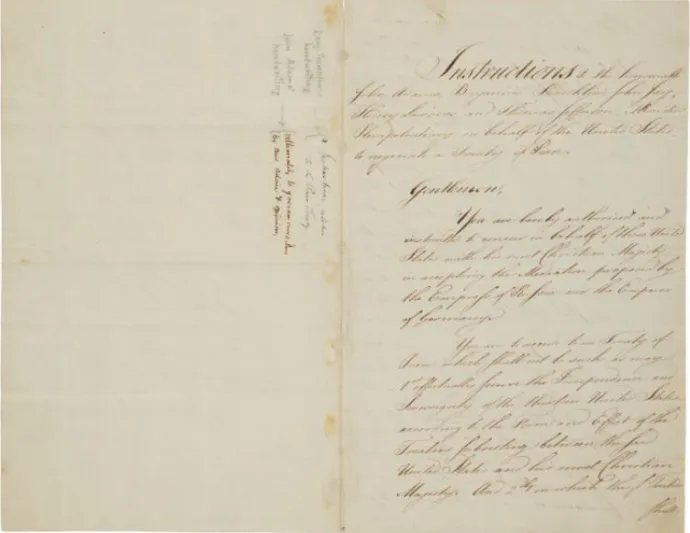 Benj Franklin's
handwriting
John Adams's
handwriting
ultimately to govern ourselves
by your Advice & opinion,
Instructions to the honorable
John Adams Benjamin Franklin John Jay,
Henry Laurens and Thomas Jefferson Ministers
Plenipotentiary in behalf of the United States
to negociate a Treaty of Peace.
Gentlemen,
You are hereby authorised and
instructed to concur in behalf of these United
States with his most Christian Majesty
in accepting the Mediation proposed by
the Empress of Russia and the Emperor
of Germany.
You are to accede to no Treaty of
Peace which shall not be such as may
1st effectually secure the Independence and
Sovereignty of the thirteen United States
according to the Form and Effect of the
Treaties subsisting between the said
United States and his most Christian
Majesty. And 2dly in which the said Treaties
shall